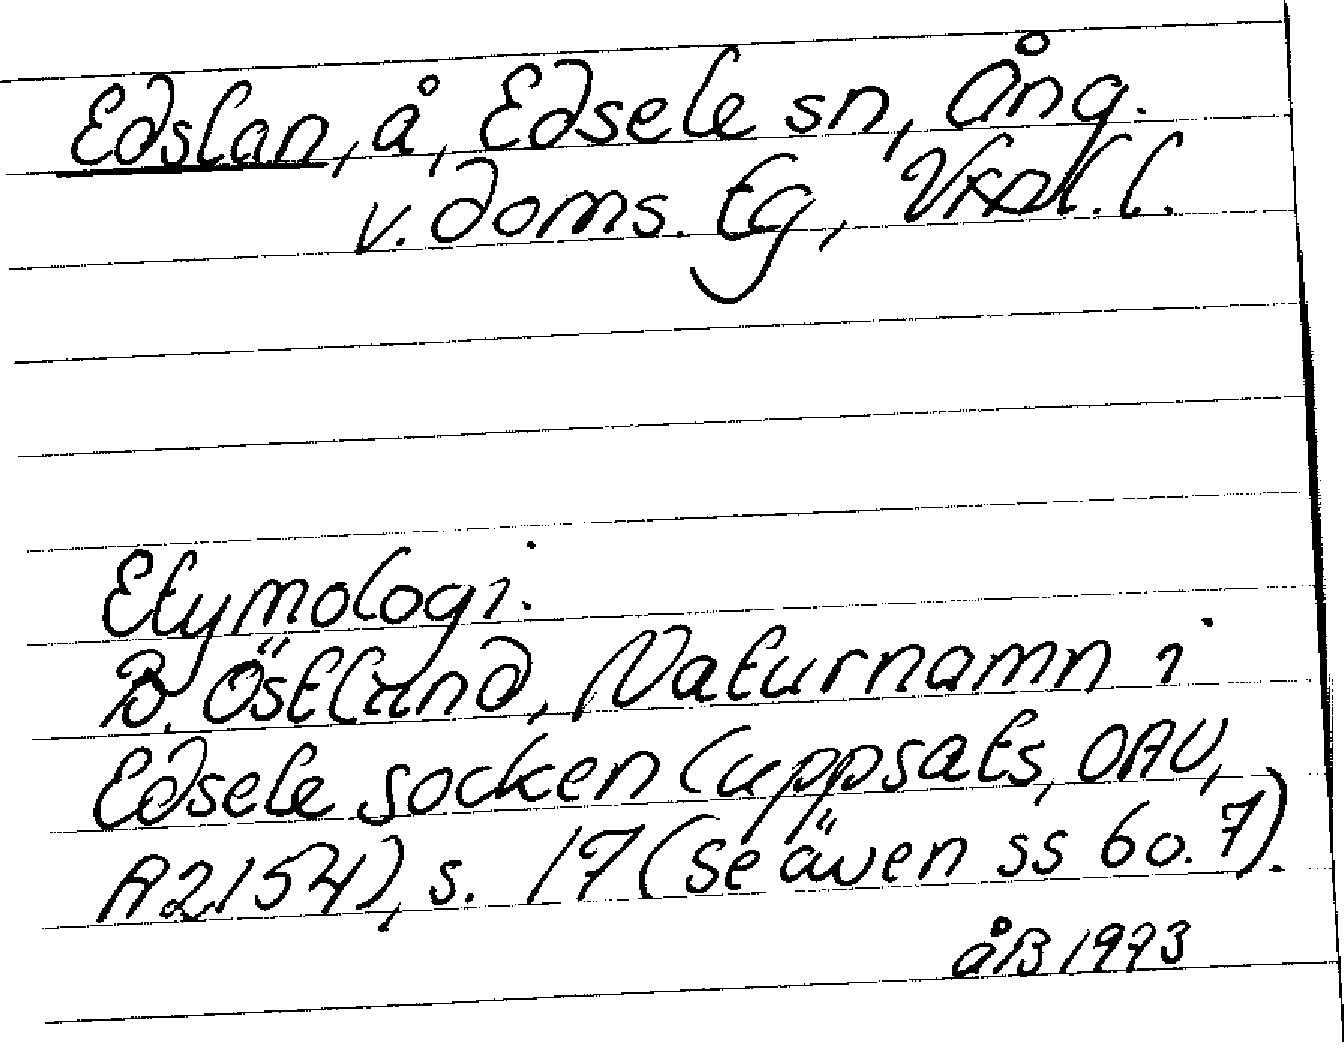 Edslan, å, Edsele sn, Ång.
v. doms. tg, Vnrl. l.
Etymologi.
B. Östlund, Naturnamn i
Edsele socken (uppsats, OAU,
A2154), s. 17 (se även ss 6o. 7).
åB 1973